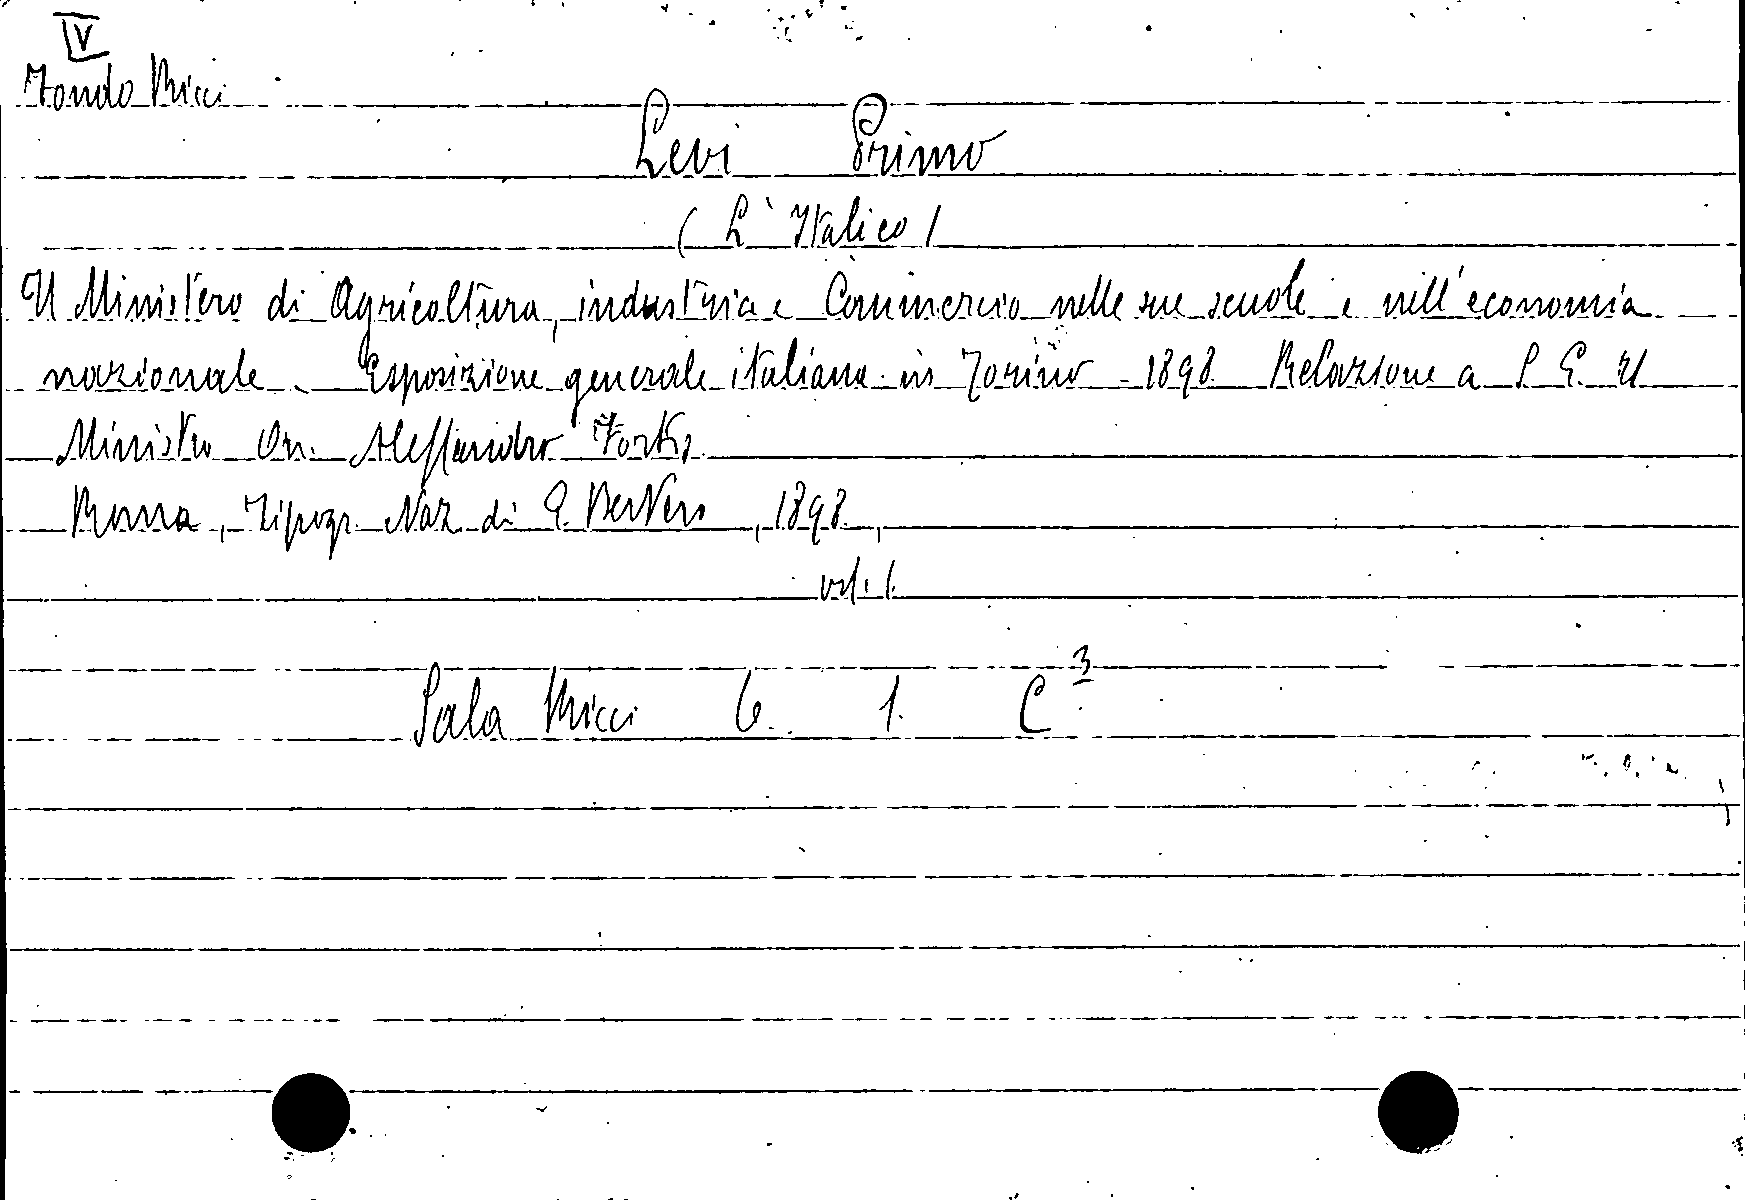 V
Fondo Ricci
Levi Primo
(L'Italico)
Il Ministero di Agricoltura, industria e Commercio nelle sue scuole e nell'economia
nazionale - Esposizione generale italiana in Torino - 1898 Relazione a S. E. Il
Ministro On. Alessandro Fortis
Roma, Tipogr. Naz. di G. Bertero, 1898,
vol. 1.
Sala Ricci 6. 1. C 3